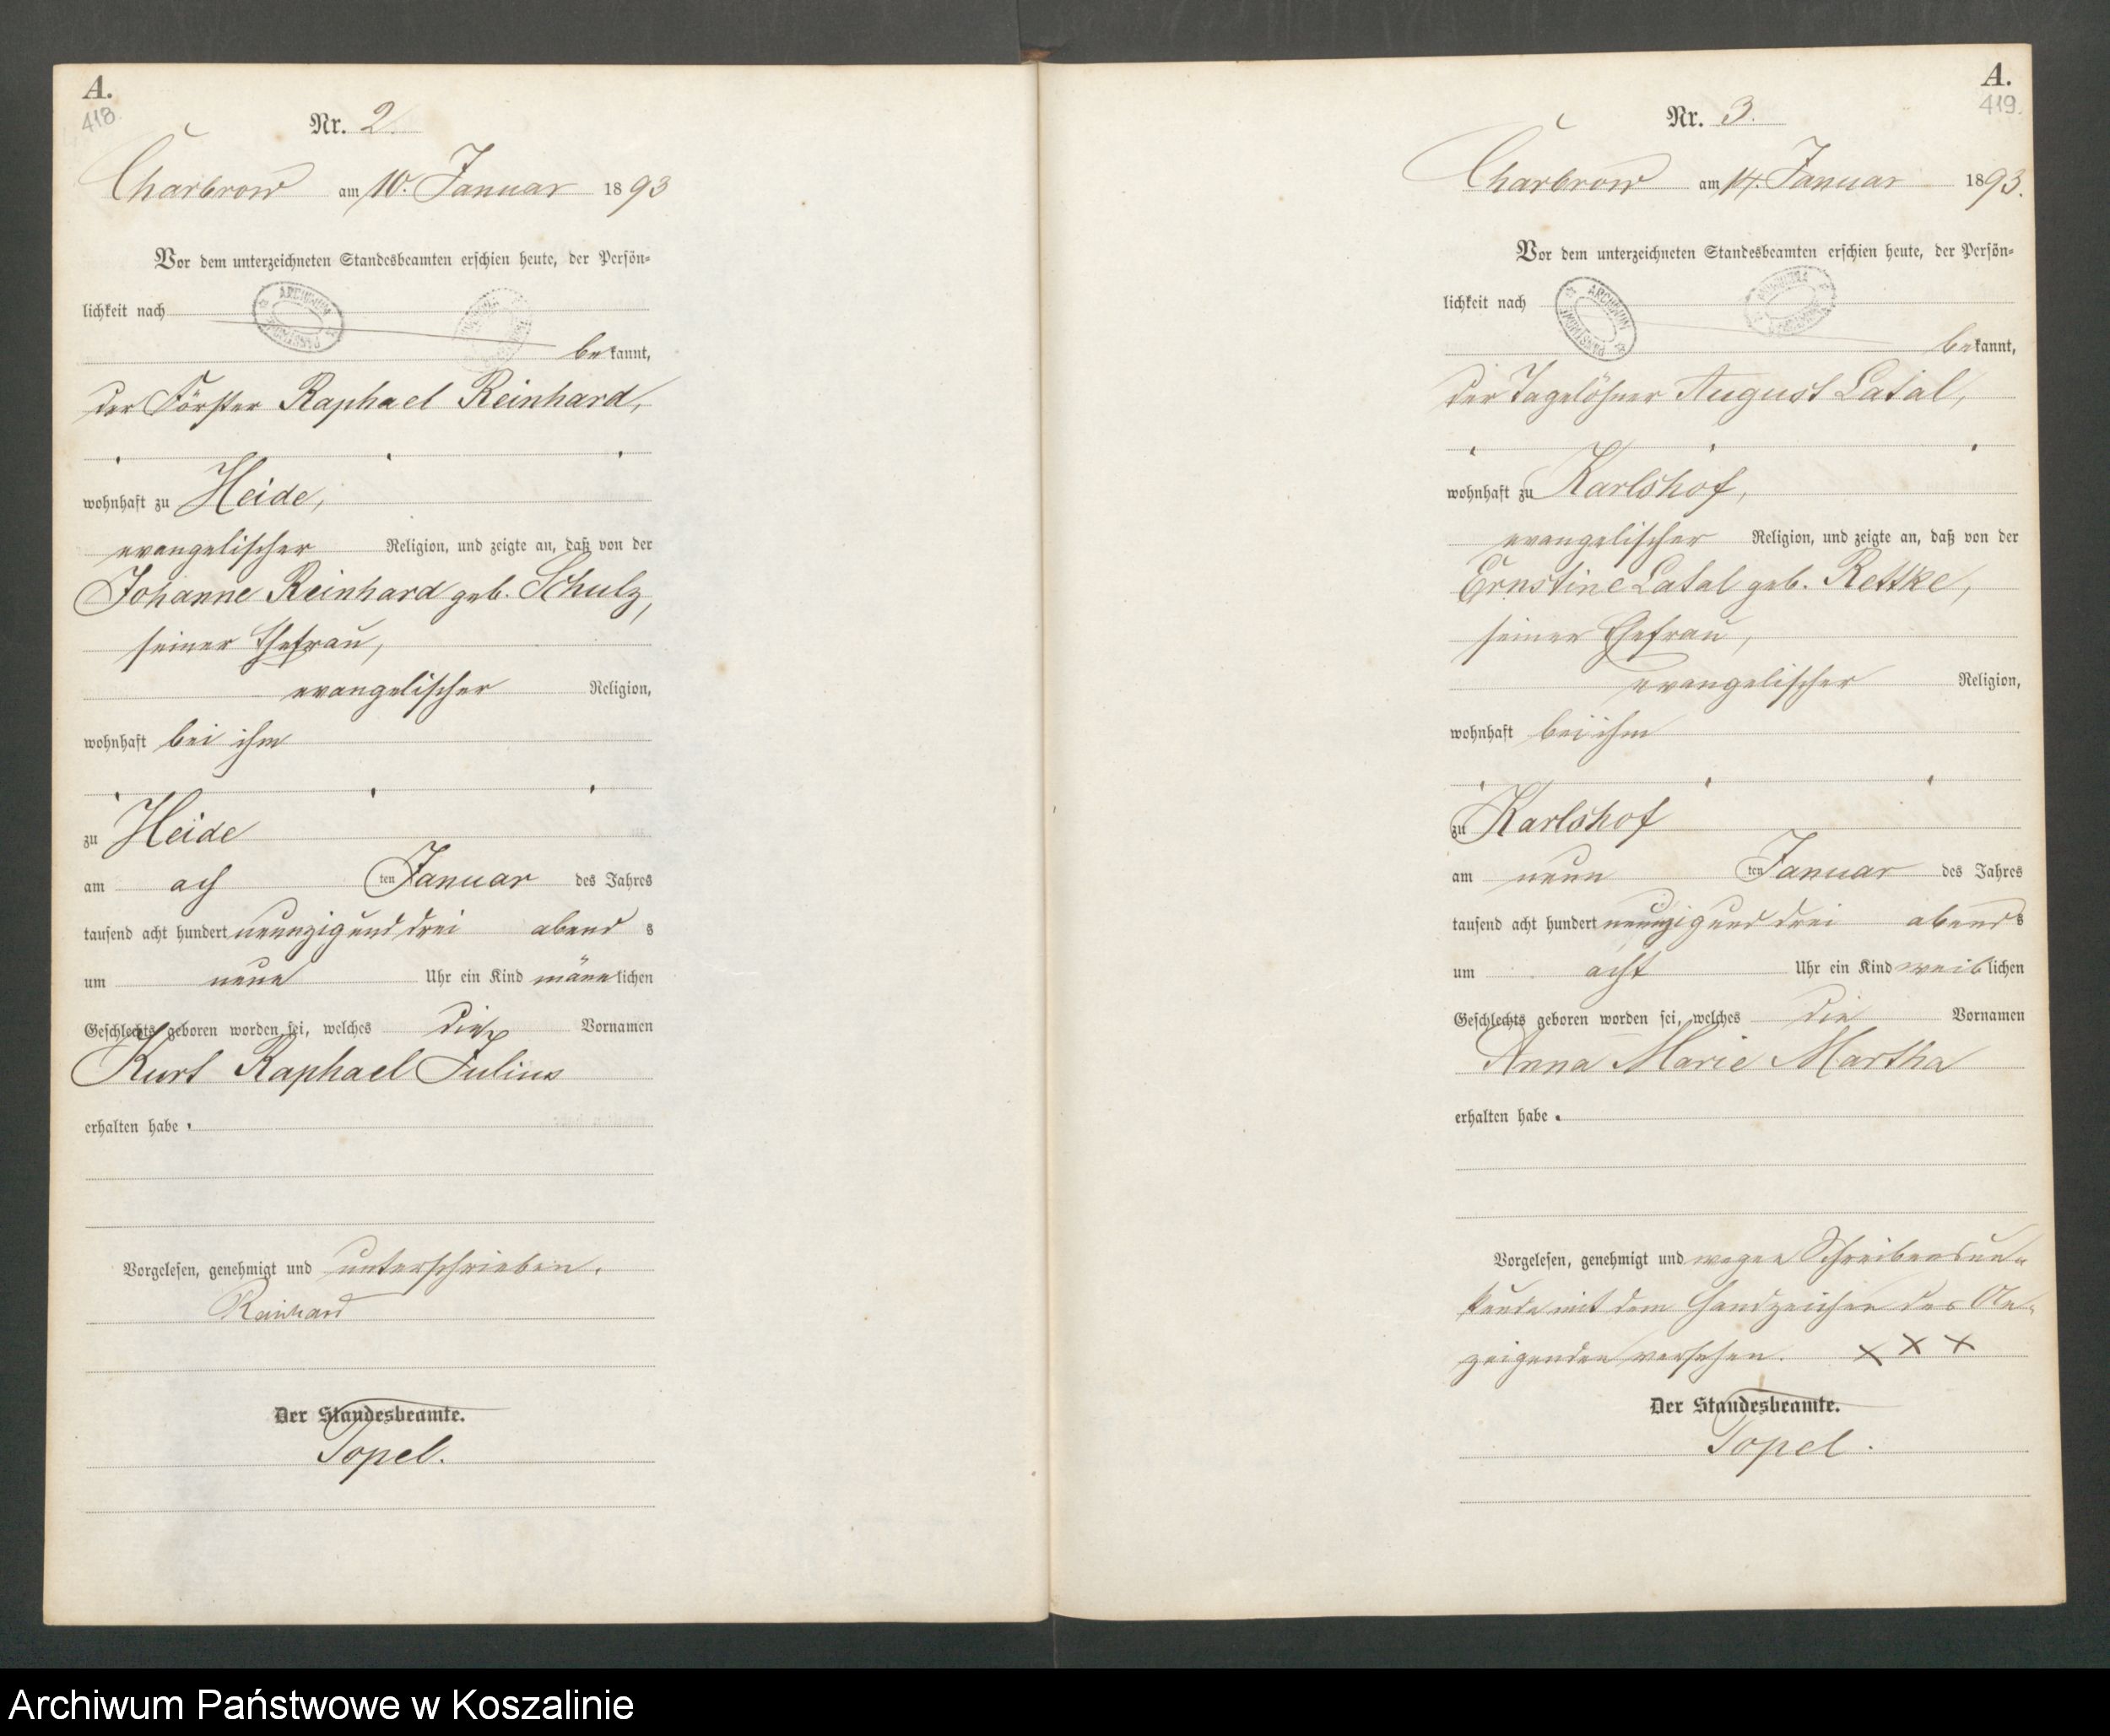 A.
418.
Nr. 2.
Charbrow am 10. Januar 1893
Vor dem unterzeichneten Standesbeamten erschien heute, der Persön-
lichkeit nach
bekannt,
der Förster Raphael Reinhard,
wohnhaft zu Heide,
evangelischer Religion, und zeigte an, daß von der
Johanne Reinhard geb. Schulz,
seiner Ehefrau,
evangelischer Religion,
wohnhaft bei ihm
zu Heide
am ach ten Januar des Jahres
tausend acht hundert neunzig und drei abend s
um neun Uhr ein Kind männlichen
Geschlechts geboren worden sei, welches die Vornamen
Kurt Raphael Julius
erhalten habe.
Vorgelesen, genehmigt und unterschrieben.
Reinhard
Der Standesbeamte.
Topel.
A.
419.
Nr. 3.
Charbrow am 14. Januar 1893.
Vor dem unterzeichneten Standesbeamten erschien heute, der Persön-
lichkeit nach
bekannt,
der Tagelöhner August Latal,
wohnhaft zu Karlshof,
evangelischer Religion, und zeigte an, daß von der
Ernstine Latal geb. Rettke,
seiner Ehefrau,
evangelischer Religion,
wohnhaft bei ihm
zu Karlshof
am neun ten Januar des Jahres
tausend acht hundert neunzig und drei abend s
um acht Uhr ein Kind weiblichen
Geschlechts geboren worden sei, welches die Vornamen
Anna Marie Martha
erhalten habe.
Vorgelesen, genehmigt und wegen Schreibensun-
kunde mit dem Handzeichen des An-
zeigenden versehen. XXX
Der Standesbeamte.
Topel.
Archiwum Państwowe w Koszalinie